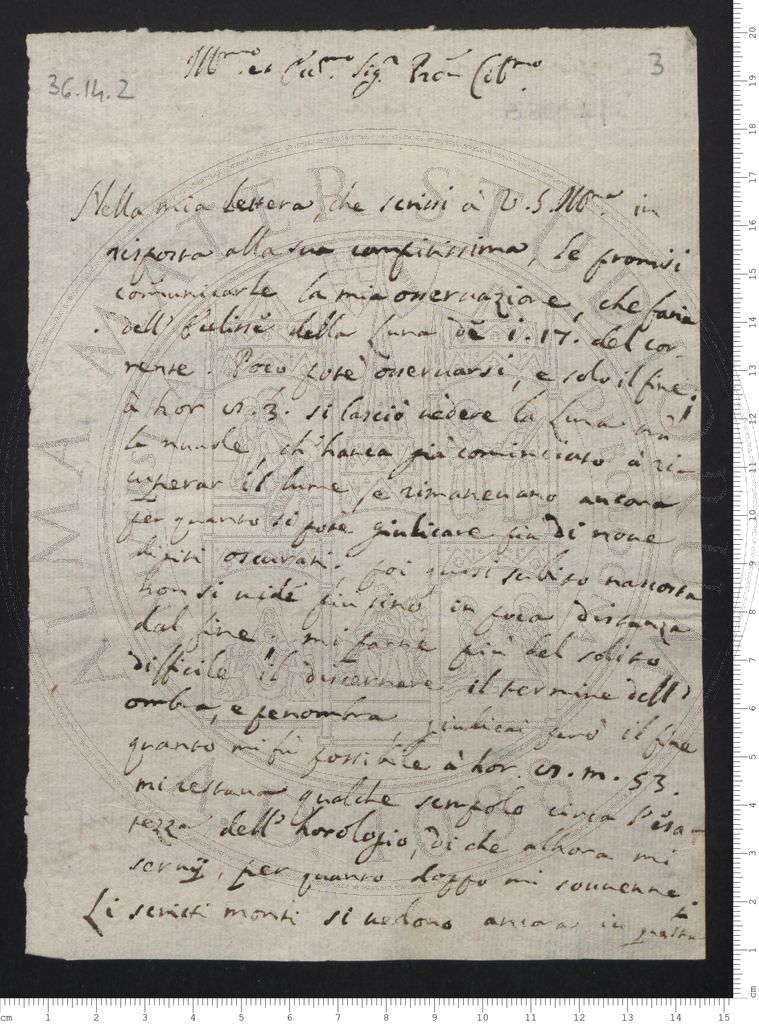 36.14.2
3
Ill.mo et Ecc.mo Sig.r Pron Col.mo
Nella mia lettera, che scrissi à V. S. Ill.ma in
risposta alla sua compitissima, le promisi
comunicarle la mia osseruazione, che faria
dell' Eclisse della Luna de i. 17. del cor-
rente. Poco potè osseruarsi, e solo il fine.
à hor 3. si lasciò vedere la Luna
le nuuole, ch' hauea già cominciato à ri-
cuperar il lume, e rimaneuano ancora
per quanto si potè giudicare più di noue
digiti oscurati; poi quasi subito nascosta
non si uidè piu sino in poca distanza
dal fine. mi parue più del solito
difficile il discernere il termine dell'
ombra, e penombra, giudicai però il fine
quanto mi fù possibile à hor. m. 53.
mi restaua qualche scrupolo circa l'esa-
tezza dell' horologio, di che alhora mi
seruij, per quanto doppo mi souuenne.
Li scritti monti si uedono ancora in questa
ALMA MATER STUDIORUM
A.D. 1088